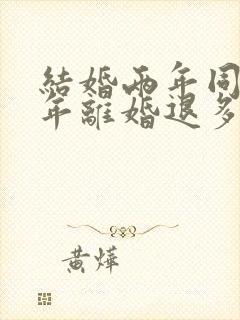 結婚兩年同
年離婚退多
黃燁